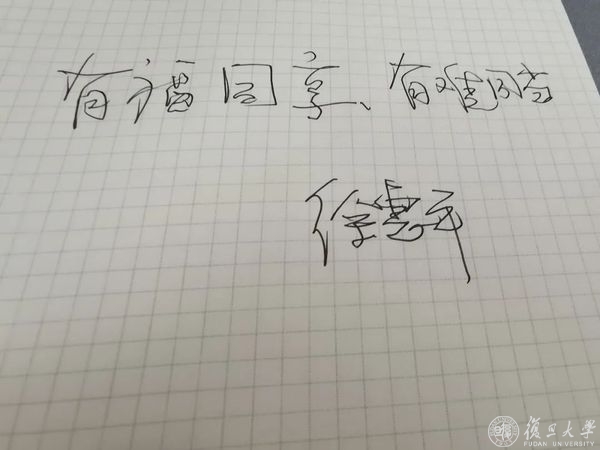 有福同享、有难同当
復旦大学
FUDAN UNIVERSITY